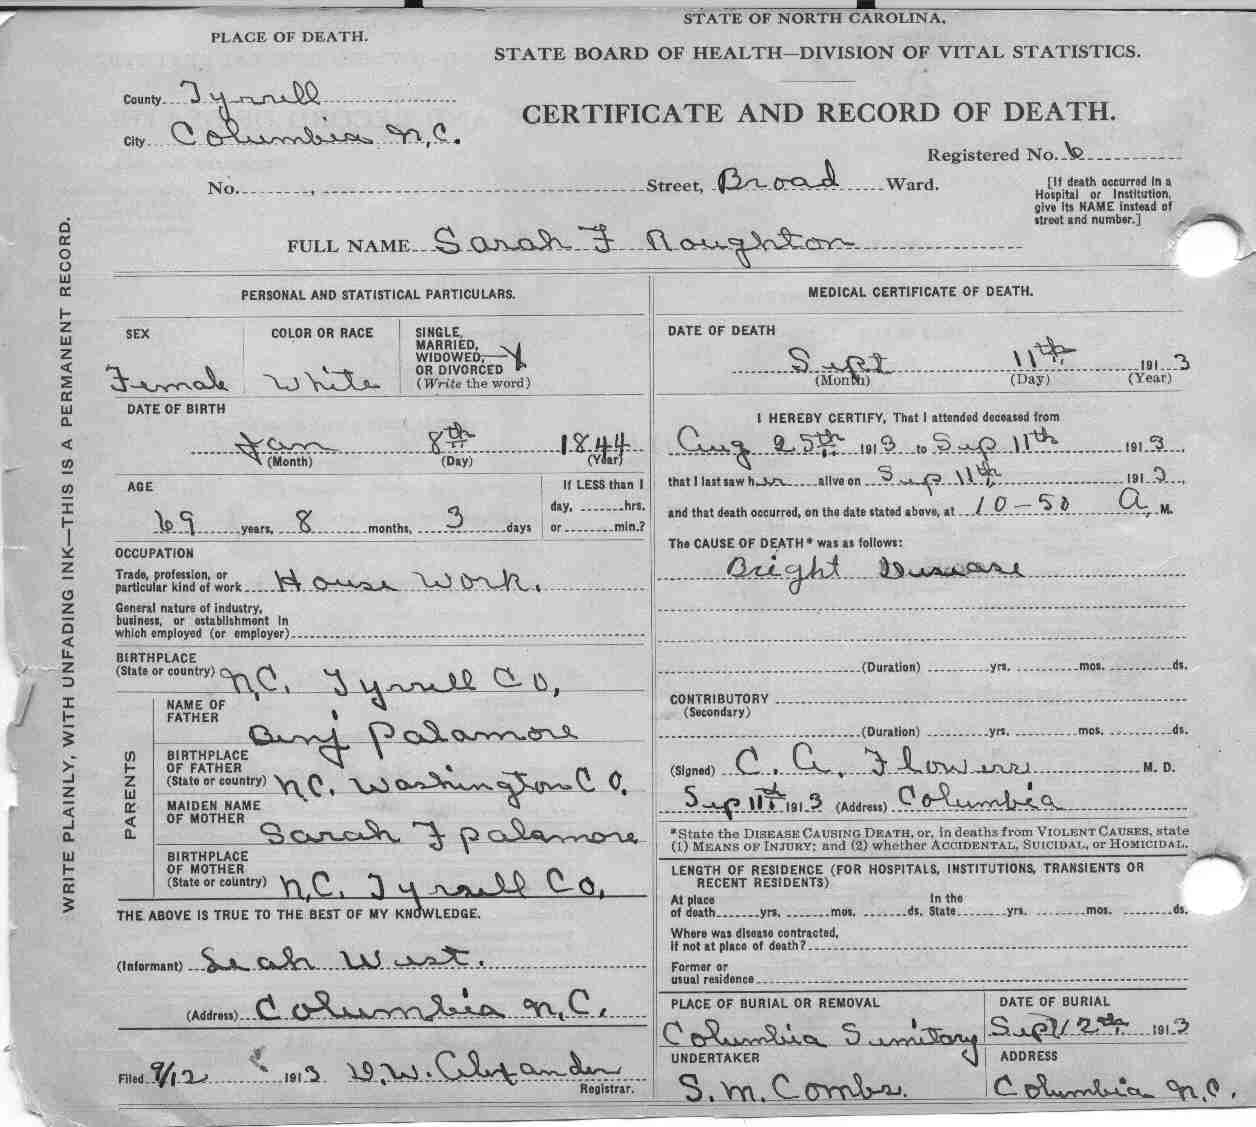 STATE OF NORTH CAROLINA.
PLACE OF DEATH.
STATE BOARD OF HEALTH—DIVISION OF VITAL STATISTICS.
County Tyrrell
CERTIFICATE AND RECORD OF DEATH.
City Columbia N,C.
Registered No. 6
No. Street, Broad Ward.
[If death occurred in a
Hospital or Institution,
give its NAME instead of
street and number.]
FULL NAME Sarah F Roughton
WRITE PLAINLY, WITH UNFADING INK—THIS IS A PERMANENT RECORD.
PERSONAL AND STATISTICAL PARTICULARS.
SEX
Female
COLOR OR RACE
White
SINGLE,
MARRIED,
WIDOWED,
OR DIVORCED
(Write the word)
DATE OF BIRTH
Jan 8th 1844
(Month) (Day) (Year)
AGE
69 years, 8 months, 3 days
If LESS than 1
day, hrs.
or min.?
OCCUPATION
Trade, profession, or
particular kind of work House Work.
General nature of industry,
business, or establishment in
which employed (or employer)
BIRTHPLACE
(State or country) N,C. Tyrrell Co,
PARENTS
NAME OF
FATHER
Benj Palamore
BIRTHPLACE
OF FATHER
(State or country) N.C. Washington Co.
MAIDEN NAME
OF MOTHER
Sarah F Palamore
BIRTHPLACE
OF MOTHER
(State or country) N.C. Tyrrell Co,
THE ABOVE IS TRUE TO THE BEST OF MY KNOWLEDGE.
(Informant) Leah West.
(Address) Columbia N,C.
Filed 9/12 1913 D.W. Alexander
Registrar.
MEDICAL CERTIFICATE OF DEATH.
DATE OF DEATH
Sept 11th 1913
(Month) (Day) (Year)
I HEREBY CERTIFY, That I attended deceased from
Aug 25th 1913 to Sep 11th 1913,
that I last saw her alive on Sep 11th 1913,
and that death occurred, on the date stated above, at 10-50 A, M.
The CAUSE OF DEATH* was as follows:
Bright Disease
(Duration) yrs. mos. ds.
CONTRIBUTORY
(Secondary)
(Duration) yrs. mos. ds.
(Signed) C. A. Flowers M. D.
Sep 11th 1913 (Address) Columbia
*State the DISEASE CAUSING DEATH, or, in deaths from VIOLENT CAUSES, state
(1) MEANS OF INJURY; and (2) whether ACCIDENTAL, SUICIDAL, or HOMICIDAL.
LENGTH OF RESIDENCE (FOR HOSPITALS, INSTITUTIONS, TRANSIENTS OR
RECENT RESIDENTS)
At place In the
of death yrs. mos. ds. State yrs. mos. ds.
Where was disease contracted,
if not at place of death?
Former or
usual residence
PLACE OF BURIAL OR REMOVAL
Columbia Simitary
DATE OF BURIAL
Sept 12th 1913
UNDERTAKER
S. M. Combs.
ADDRESS
Columbia N,C.